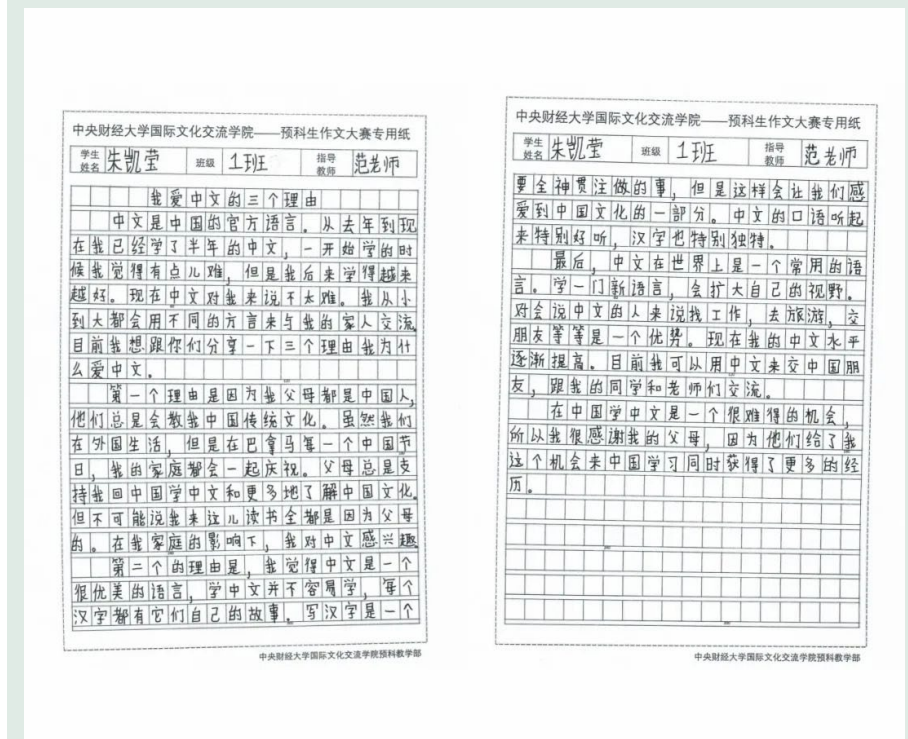 中央财经大学国际文化交流学院——预科生作文大赛专用纸
学生姓名 朱凯莹 班级 1班 指导教师 范老师
我爱中文的三个理由
中文是中国的官方语言。从去年到现
在我已经学了半年的中文,一开始学的时
候我觉得有点儿难,但是我后来学得越来
越好。现在中文对我来说不太难。我从小
到大都会用不同的方言来与我的家人交流。
目前我想跟你们分享一下三个理由我为什
么爱中文。
第一个理由是因为我父母都是中国人,
他们总是会教我中国传统文化。虽然我们
在外国生活,但是在巴拿马每一个中国节
日,我的家庭都会一起庆祝。父母总是支
持我回中国学中文和更多地了解中国文化。
但不可能说我来这儿读书全都是因为父母
的。在我家庭的影响下,我对中文感兴趣
第二个的理由是,我觉得中文是一个
很优美的语言,学中文并不容易学,每个
汉字都有它们自己的故事。写汉字是一个
中央财经大学国际文化交流学院预科教学部
中央财经大学国际文化交流学院——预科生作文大赛专用纸
学生姓名 朱凯莹 班级 1班 指导教师 范老师
要全神贯注做的事,但是这样会让我们感
爱到中国文化的一部分。中文的口语听起
来特别好听,汉字也特别独特。
最后,中文在世界上是一个常用的语
言。学一门新语言,会扩大自己的视野。
对会说中文的人来说找工作,去旅游,交
朋友等等是一个优势。现在我的中文水平
逐渐提高。目前我可以用中文来交中国朋
友,跟我的同学和老师们交流。
在中国学中文是一个很难得的机会,
所以我很感谢我的父母,因为他们给了我
这个机会来中国学习同时获得了更多的经
历。
中央财经大学国际文化交流学院预科教学部